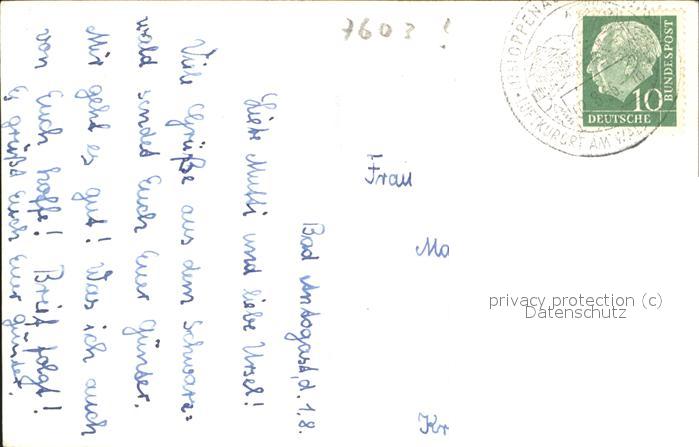 7603!
OPPENAU
LUFTKURORT AM
10
DEUTSCHE
BUNDESPOST
Bad Antogast, d. 1.8.
Liebe Mutti und liebe Ursel!
Viele Grüße aus dem Schwarz=
wald sendet Euch Euer Günter.
Mir geht es gut! Was ich auch
von Euch hoffe! Brief folgt!
Es grüßt Euch Euer Günter.
Frau
Mo
Kr
privacy protection (c)
Datenschutz